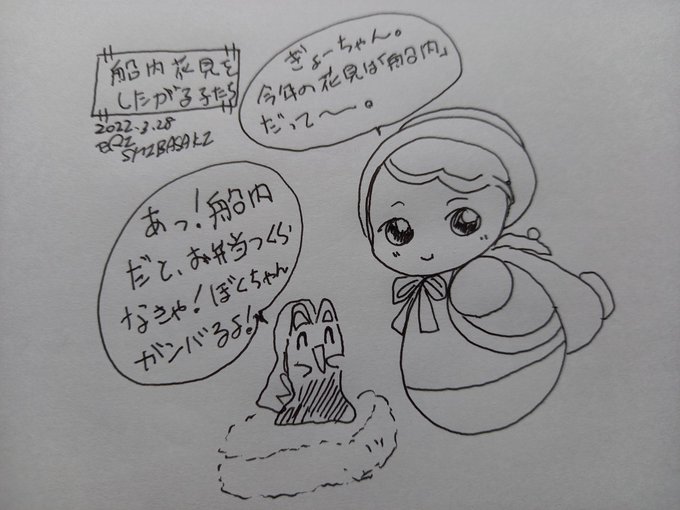 船内花見を
したがる子たち
2022.3.28
SHIBASAKI
ぎょーちゃん。
今年の花見は「船内」
だって〜。
あっ!船内
だと、お弁当つくら
なきゃ!ぼくちゃん
ガンバるよ!